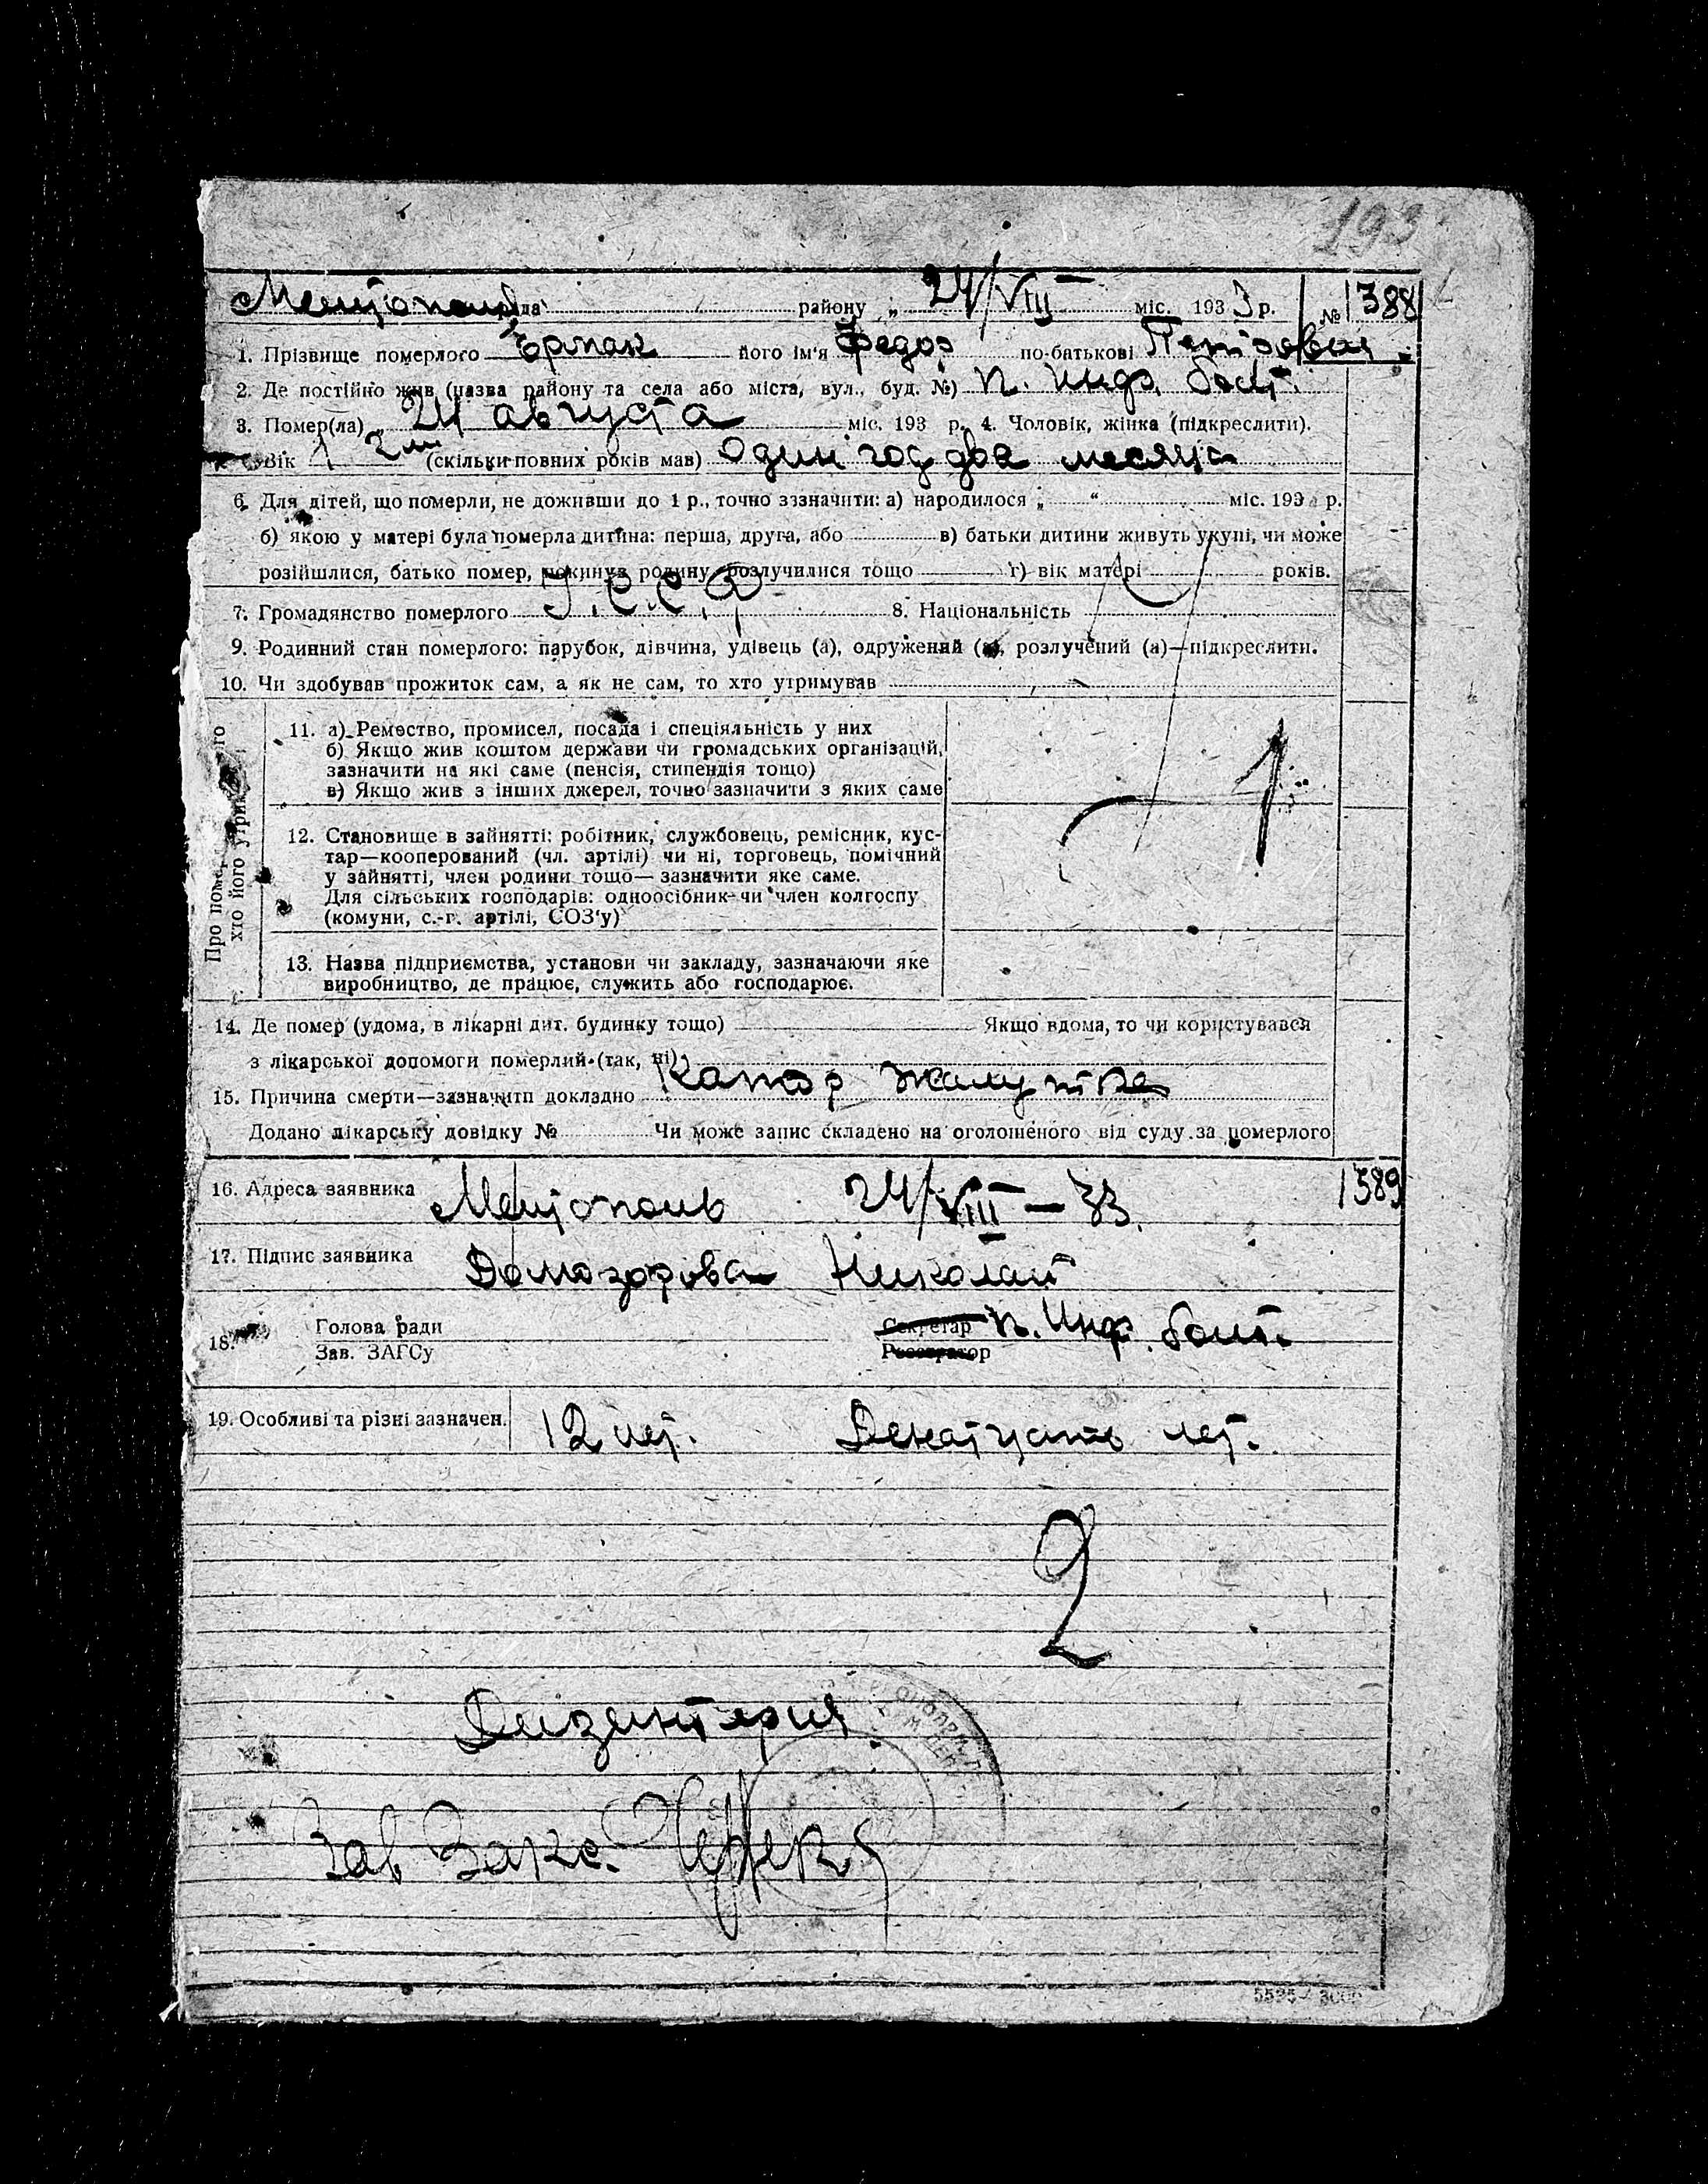 193
Мелітополь да району „ 24/VIII міс. 1933 р. № 1388
1. Прізвище померлого Ермак його ім'я Федор по-батькові Петрович
2. Де постійно жив (назва району та села або міста, вул., буд. №) п. Инф. бол.
3. Помер(ла) „ 24 августа міс. 193 р. 4. Чоловік, жінка (підкреслити).
Вік 1 2 м (скільки повних років мав) один год два месяца
6. Для дітей, що померли, не доживши до 1 р., точно зазначити: а) народилося „ “ міс. 193 р.
б) якою у матері була померла дитина: перша, друга, або в) батьки дитини живуть укупі, чи може
розійшлися, батько помер, покинув родину, розлучилися тощо г) вік матері років.
7. Громадянство померлого У.С.С.Р 8. Національність
9. Родинний стан померлого: парубок, дівчина, удівець (а), одружений (а), розлучений (а)—підкреслити.
10. Чи здобував прожиток сам, а як не сам, то хто утримував
Про померлого
хто його утрим
11. а) Ремество, промисел, посада і спеціяльність у них
б) Якщо жив коштом держави чи громадських організацій,
зазначити на які саме (пенсія, стипендія тощо)
в) Якщо жив з інших джерел, точно зазначити з яких саме
1
12. Становище в зайнятті: робітник, службовець, ремісник, кус-
тар—кооперований (чл. артілі) чи ні, торговець, помічний
у зайнятті, член родини тощо— зазначити яке саме.
Для сільських господарів: одноосібник чи член колгоспу
(комуни, с.-г. артілі, СОЗ'у)
13. Назва підприємства, установи чи закладу, зазначаючи яке
виробництво, де працює, служить або господарює.
14. Де помер (удома, в лікарні дит. будинку тощо) Якщо вдома, то чи користувався
з лікарської допомоги померлий (так, ні)
15. Причина смерти—зазначити докладно Катар желутка
Додано лікарську довідку № Чи може запис складено на оголошеного від суду за померлого
16. Адреса заявника Мелітополь 24/VIII — 33. 1389
17. Підпис заявника Домозорова Николай
18. Голова ради Секретар п. Инф. бол.
Зав. ЗАГСу Реєстратор
19. Особливі та різні зазначен. 12 лет. Денатцать лет.
2
Дизентерия
Зав Загс.
5595 — 3000